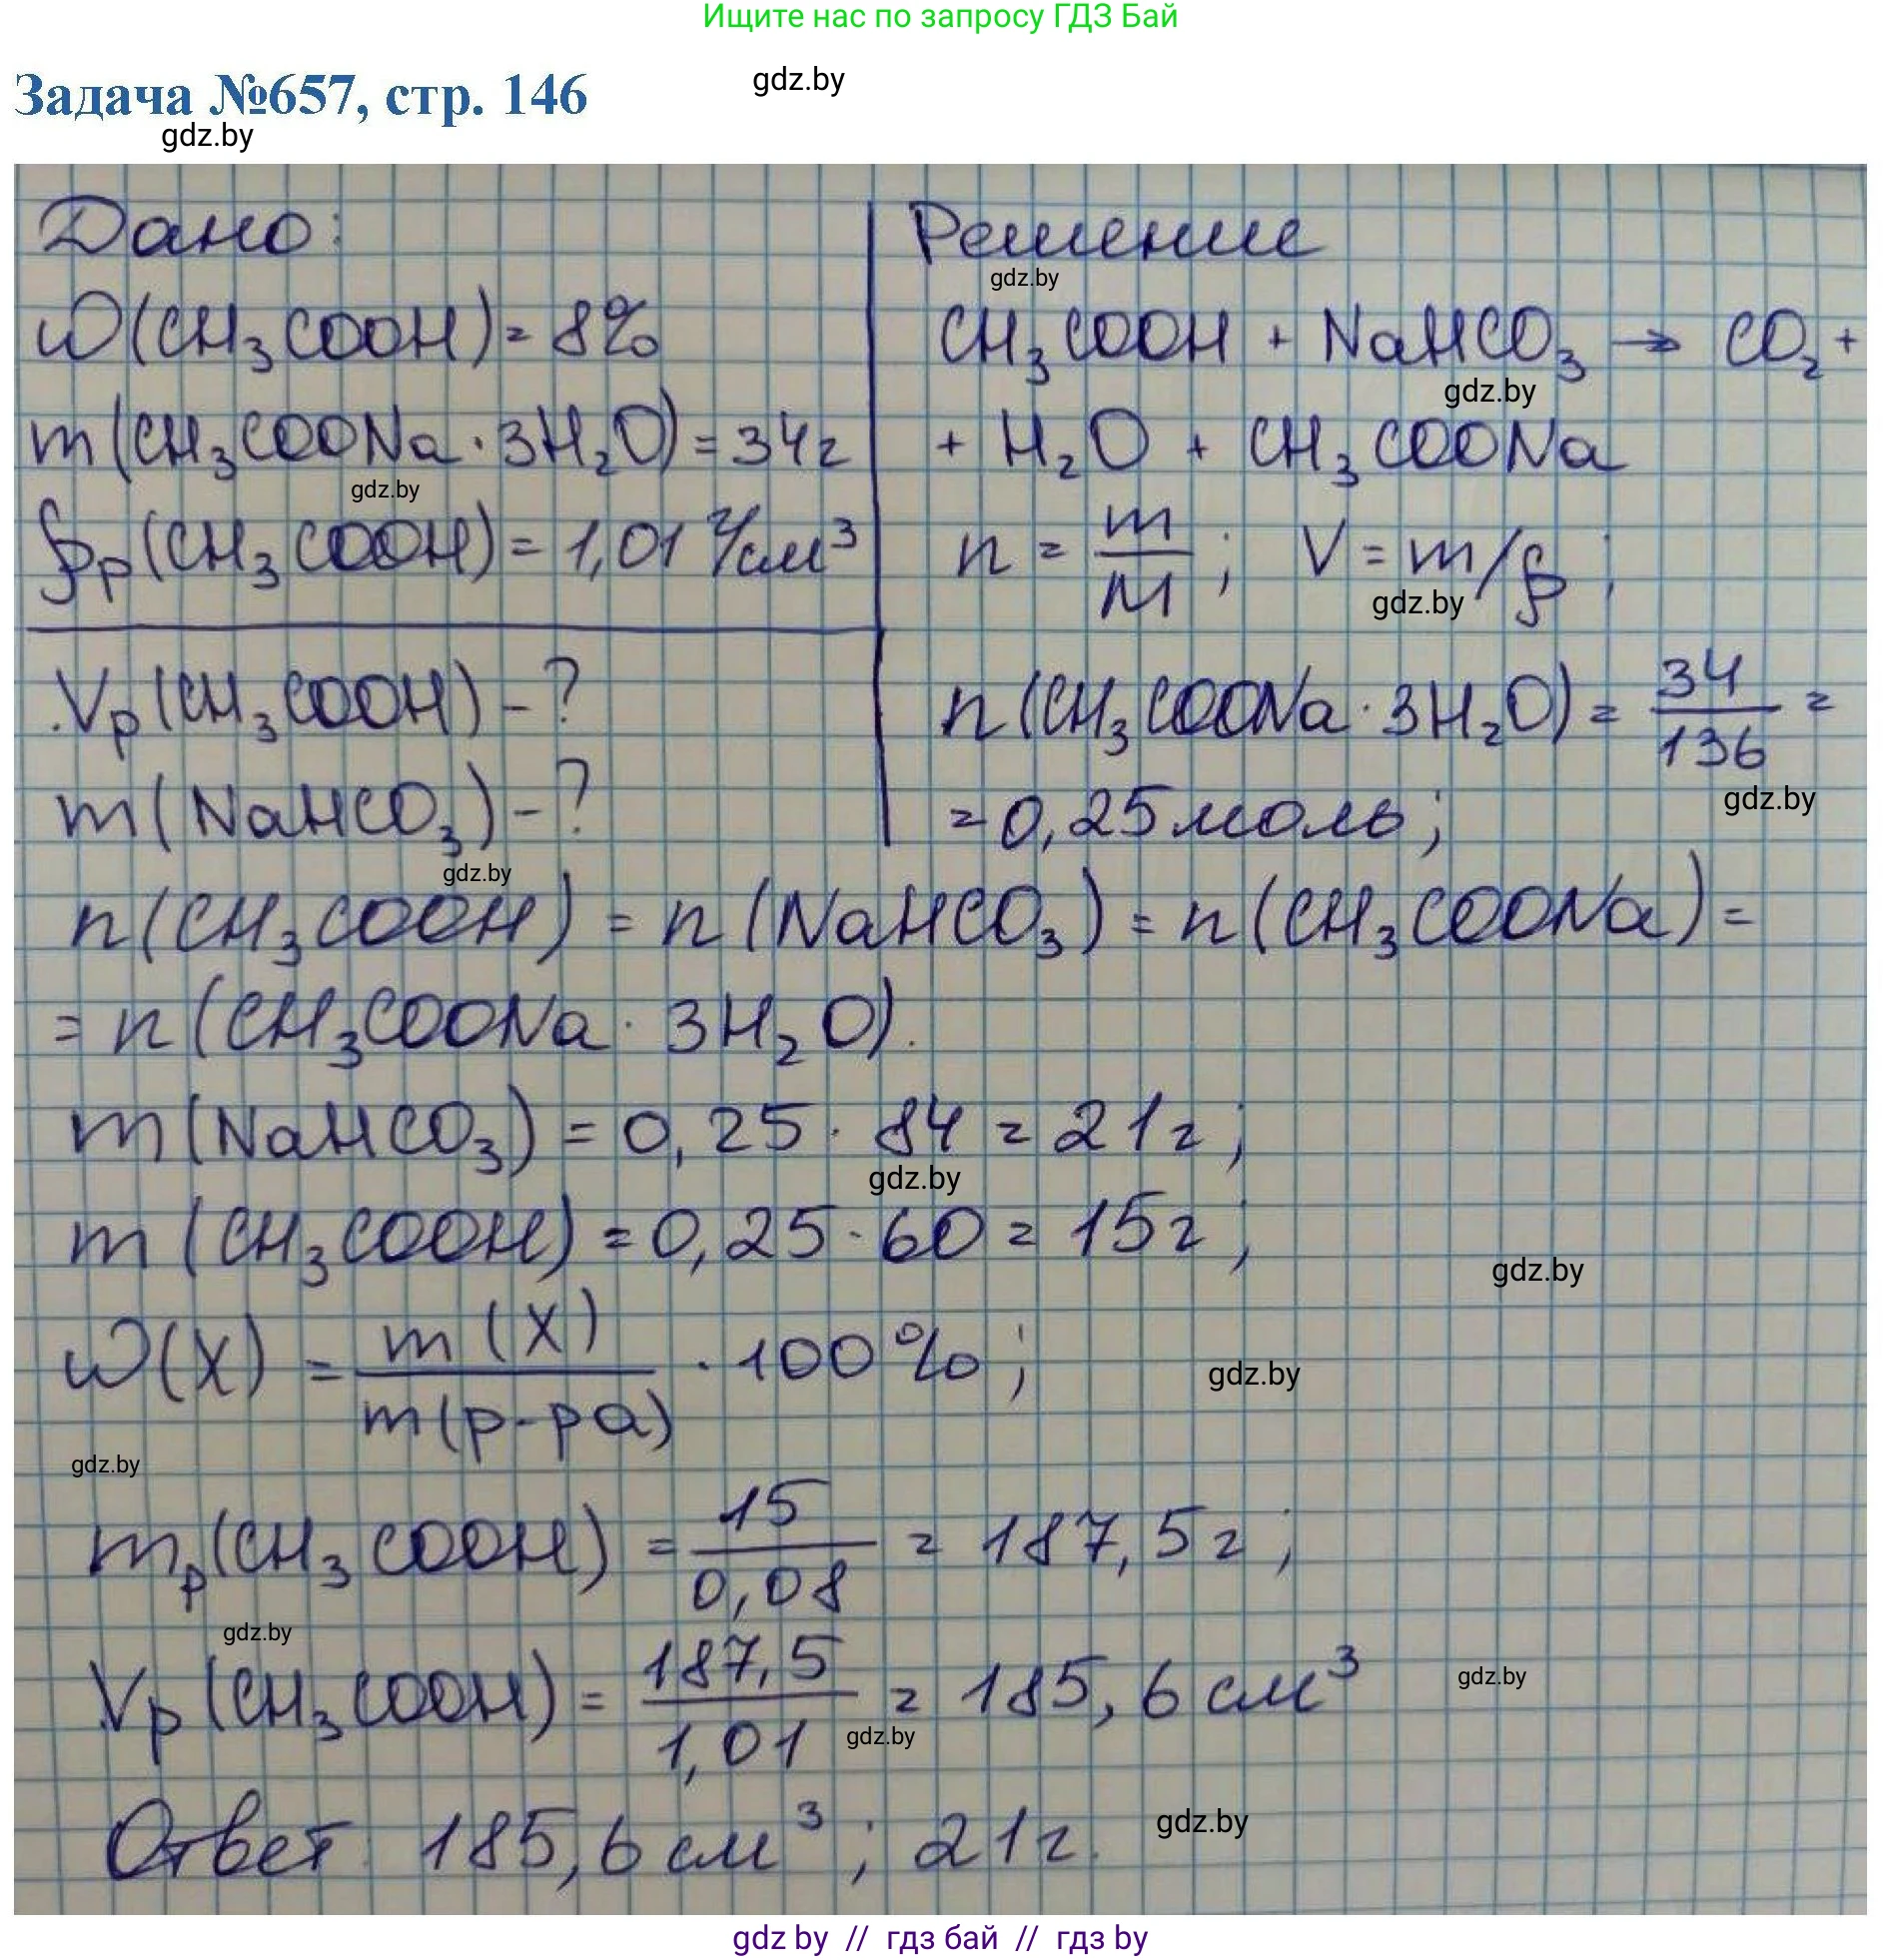 Ищите нас по запросу ГДЗ Бай
Задача №657, стр. 146
gdz.by
gdz.by
Дано:
ω(CH₃COOH) = 8%
m(CH₃COONa·3H₂O) = 34г
gdz.by
ρр(CH₃COOH) = 1,01 г/см³
Vр(CH₃COOH) - ?
m(NaHCO₃) - ?
gdz.by
Решение
gdz.by
CH₃COOH + NaHCO₃ → CO₂ +
gdz.by
+ H₂O + CH₃COONa
n = m/M ; V = m/ρ ;
gdz.by
n(CH₃COONa·3H₂O) = 34/136 =
gdz.by
= 0,25 моль;
n(CH₃COOH) = n(NaHCO₃) = n(CH₃COONa) =
= n(CH₃COONa·3H₂O).
m(NaHCO₃) = 0,25 · 84 = 21г;
gdz.by
m(CH₃COOH) = 0,25 · 60 = 15г;
gdz.by
ω(X) = m(X)/m(р-ра) · 100%;
gdz.by
gdz.by
mр(CH₃COOH) = 15/0,08 = 187,5г;
gdz.by
Vр(CH₃COOH) = 187,5/1,01 = 185,6 см³
gdz.by
gdz.by
Ответ: 185,6 см³; 21г.
gdz.by
gdz by // гдз бай // гдз by